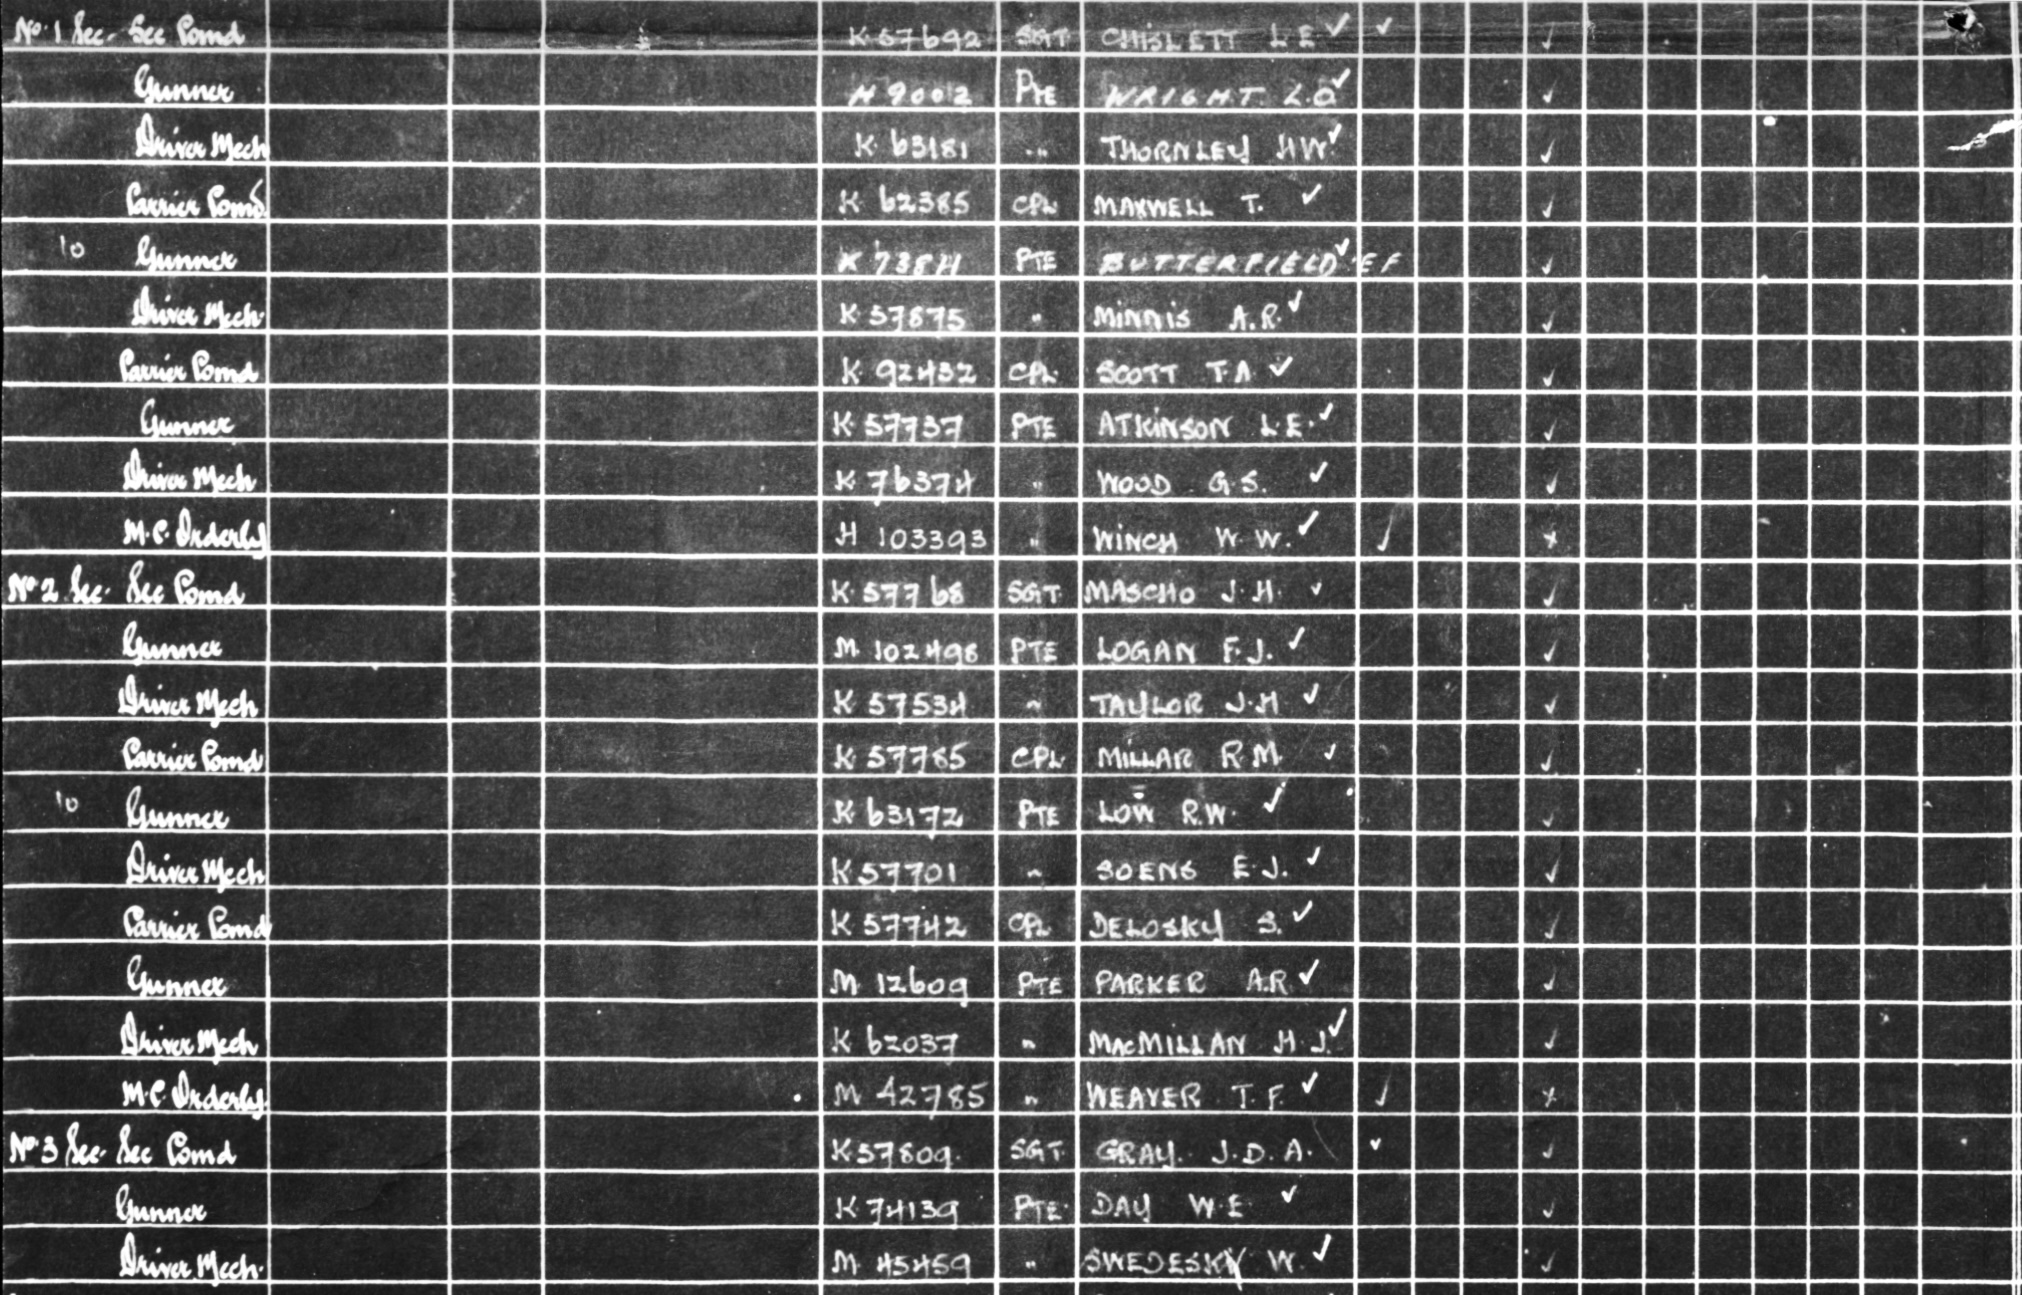 No. 1 Sec. Sec Comd K 57692 SGT CHISLETT L E ✓ ✓ ✓
Gunner H 9002 PTE WRIGHT L.O ✓ ✓
Driver Mech K 63181 " THORNLEY H W. ✓ ✓
Carrier Comd. K 62385 CPL MAXWELL T. ✓ ✓
10 Gunner K 7384 PTE BUTTERFIELD E F ✓ ✓
Driver Mech. K 57875 " MINNIS A.R. ✓ ✓
Carrier Comd K 92432 CPL SCOTT T A ✓ ✓
Gunner K 57737 PTE ATKINSON L.E. ✓ ✓
Driver Mech K 76374 " WOOD G.S. ✓ ✓
M.C. Orderly H 103393 " WINCH W W. ✓ ✓ x
No. 2 Sec. Sec Comd K 57768 SGT MASCHO J.H. ✓ ✓
Gunner M 102498 PTE LOGAN F.J. ✓ ✓
Driver Mech K 57534 " TAYLOR J.H ✓ ✓
Carrier Comd K 57785 CPL MILLAR R.M. ✓ ✓
10 Gunner K 63172 PTE LOW R.W. ✓ ✓
Driver Mech K 57701 " SOENS E.J. ✓ ✓
Carrier Comd K 57742 CPL DELOSKY S. ✓ ✓
Gunner M 12609 PTE PARKER A.R ✓ ✓
Driver Mech K 62037 " MACMILLAN H.J. ✓ ✓
M.C. Orderly. M 42785 " WEAVER T.F. ✓ ✓ x
No. 3 Sec. Sec Comd K 57809. SGT GRAY. J.D.A. ✓ ✓
Gunner K 74139 PTE. DAY W.E. ✓ ✓
Driver Mech. M 45459 " SWEDESKY W. ✓ ✓